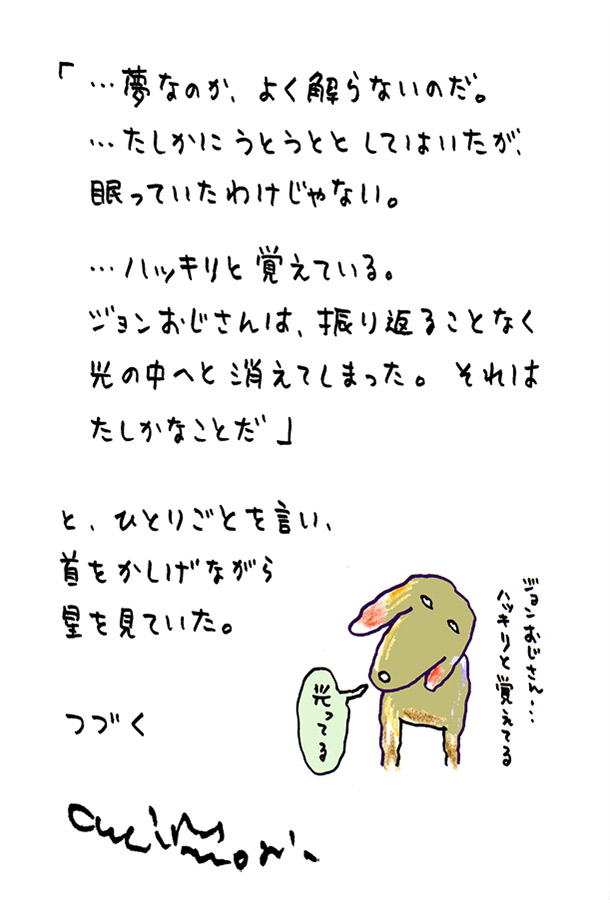 「…夢なのか、よく解らないのだ。
…たしかにうとうととしてはいたが、
眠っていたわけじゃない。
…ハッキリと覚えている。
ジョンおじさんは、振り返ることなく
光の中へと消えてしまった。それは
たしかなことだ」
と、ひとりごとを言い、
首をかしげながら
星を見ていた。
ジョンおじさん…
ハッキリと覚えてる
光ってる
つづく